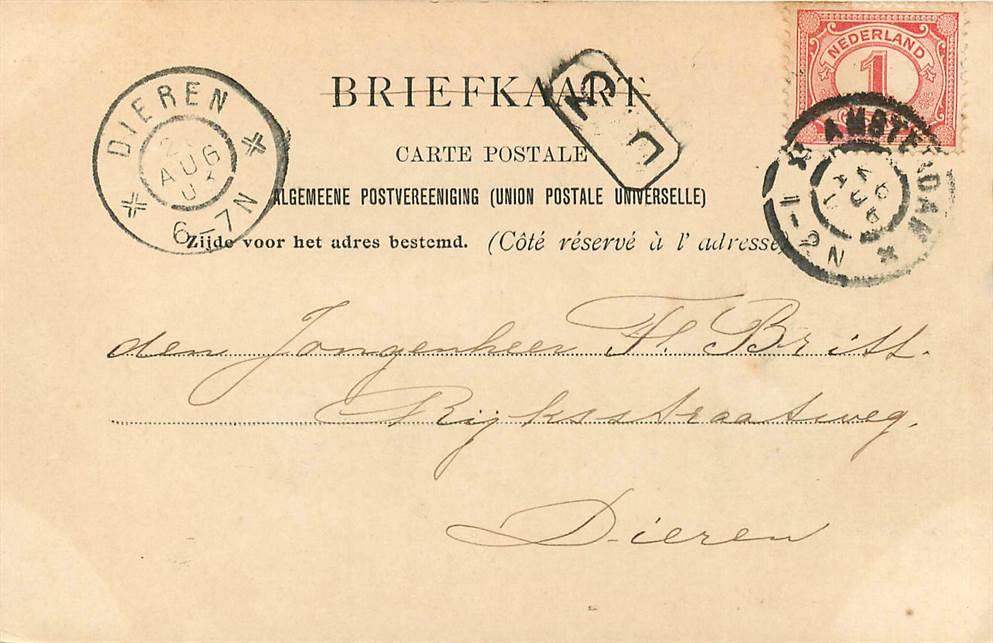 NEDERLAND
1
DIEREN
AUG
6-7N
AMSTERDAM
AUG
1-2N
BRIEFKAART
CARTE POSTALE
ALGEMEENE POSTVEREENIGING (UNION POSTALE UNIVERSELLE)
Zijde voor het adres bestemd. (Côté réservé à l'adresse)
den Jongenheer F. Britt.
Rijksstraatweg.
Dieren